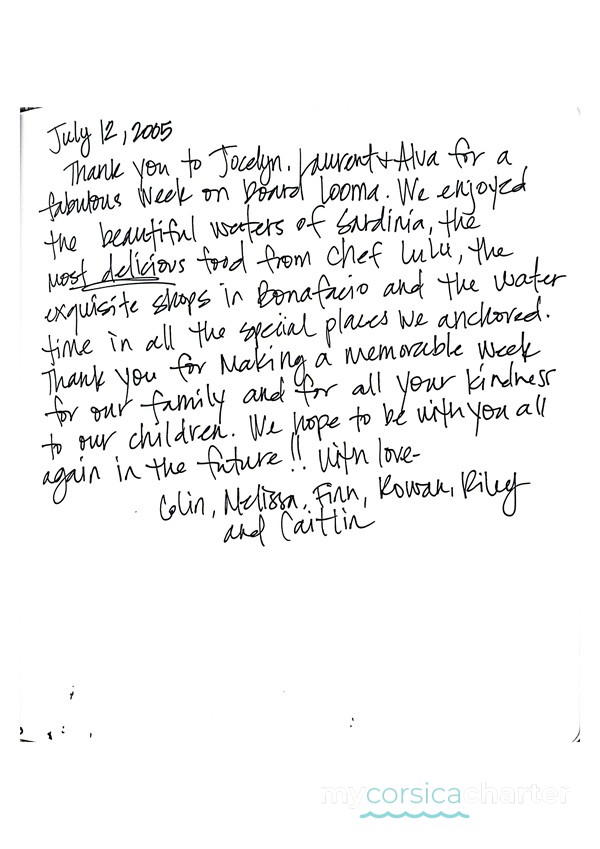 July 12, 2005
Thank you to Jocelyn, Laurent + Alva for a
fabulous week on board Looma. We enjoyed
the beautiful waters of Sardinia, the
most delicious food from chef Lulu, the
exquisite shops in Bonafacio and the water
time in all the special places we anchored.
Thank you for making a memorable week
for our family and for all your kindness
to our children. We hope to be with you all
again in the future!! With love-
Colin, Melissa, Finn, Rowan, Riley
and Caitlin
mycorsicacharter